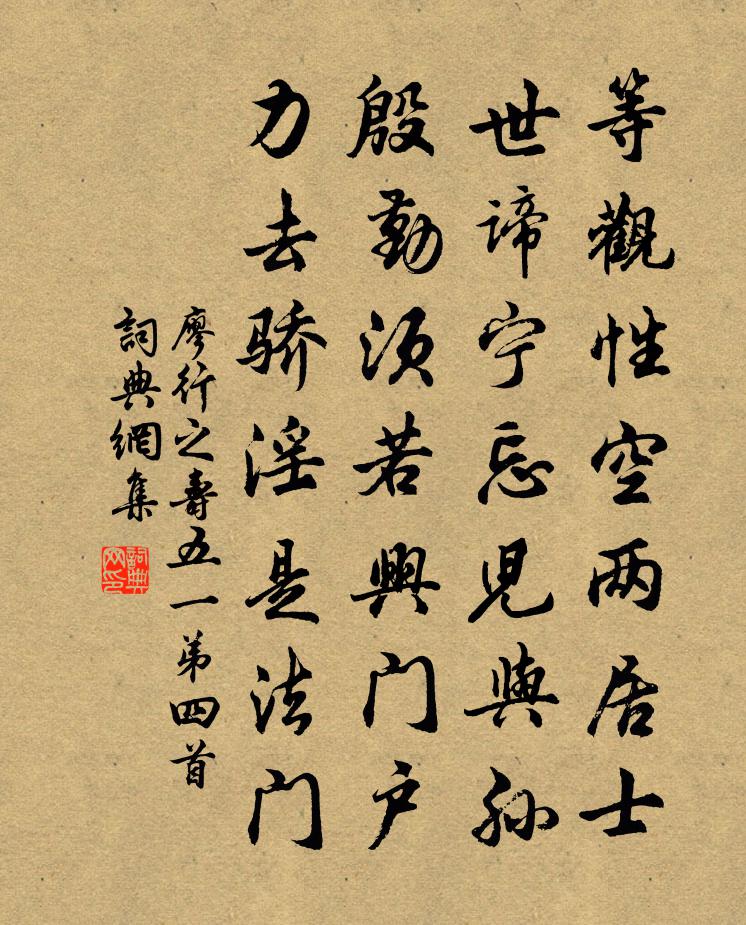 等觀性空两居士
世谛宁忘児與孙
殷勤须若興门户
力去骄淫是法门
廖行之壽五一第四首
詞典網集
詞典网印